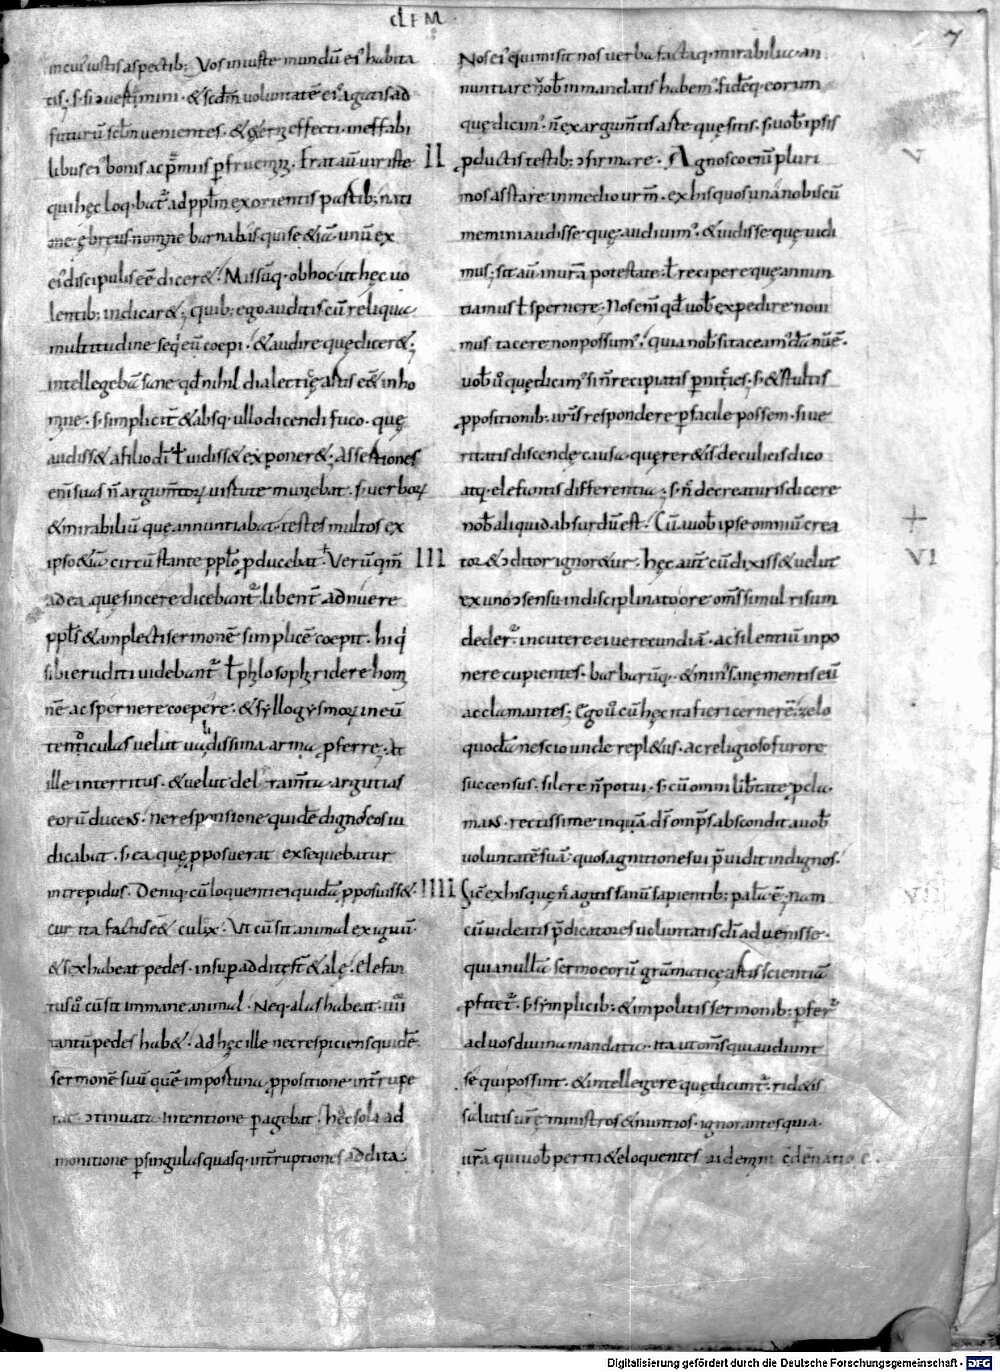 CLEM
7
in cui' iustis aspectib; Vos iniuste mundū ei' habita
tis· s; si ɔuersi fuim'ni· & scdm̄ uoluntatē ei' agatis ad
futurū sclm̄ uenientes· & ęterni effecti· ineffabi
libus ei' bonis ac p̄miis pfruemini. Erat aūt uir iste
qui hęc loq̄bat' ad pplm̄ ex orientis partib; nati
one ębreus nomine barnabas qui se &iā unū ex
ei' discipulis eē dicer&· Missūq· ob hoc ut hęc uo
lentib; indicar&; quib; ego auditis cū reliqua
multitudine seq̄ eū coepi· & audire quę dicer&;
intellegebā sane qd nihil dialecticę artis eēt in ho
mine· s; simplicit̄ & absq· ullo dicendi fuco· quę
audiss& a filio dī ł uidiss& exponer&; Assertiones
enī suas n̄ argumtoꝝ uirtute muniebat· s; uerboꝝ
& mirabiliū quę annuntiabat testes multos ex
ipso &iā circū stante pplo pducebat· Verū qm̄
ad ea quę sincere dicebant' libent̄ adnuere
ppl's & amplecti sermonē simplicē coepit· hi q'
sibi eruditi uidebant' ł phylosophi ridere homi
nē ac spernere coepere· & syllogysmoꝝ in eū
tenticulas uelut ualidissima arma pferre· At
ille interritus· & uelut deliramta argutias
eorū ducens· ne responsione quidē dignos eos iu
dicabat· s; ea quę pposuerat exsequebatur
intrepidus· Deniq· cū loquenti ei quidā pposuiss&·
cur ita factus eēt culix· Vt cū sit animal exiguū·
& sex habeat pedes· insup additę st & alę· elefan
tus ū cū sit immane animal· Neq· alas habeat· iiii
tantū pedes hab&· Ad hęc ille nec respiciens quidē·
sermonē suū quē importuna ppositione int̄rupe
rat ɔtinuata intentione pagebat· hęc sola ad
monitione p singulas quasq· int̄ruptiones addita·
II
III
IIII
Nos ei' qui misit nos uerba facta q· mirabilia· an
nuntiare uob in mandatis habem'· fidēq· eorum
quę dicim'· n̄ ex argumtis arte quęsitis· s; uob ipsis
pductis testib; ɔfirmare· Agnosco enī pluri
mos asstare in medio urm̄· ex his quos una nobiscū
memini audisse quę audiuim'· & uidisse quę uidi
mus; sit aū in urā potestate ł recipere quę annun
tiamus ł spernere· Nos enī qd uob expedire noui
mus tacere non possum'· quia nob si taceam' damnū ē·
uob ū quę dicim' si n̄ recipiatis pnicies· s; & stultis
ppositionib; uris respondere pfacile possem· si ue
ritatis discendę causa quęrer&is de culicis dico
atq· elefantis differentia; s; n̄ de creaturis dicere
nob aliquid absurdū est· Cū a uob ipse omniū crea
tor & ɔditor ignor&ur· hęc aūt cū dixiss& uelut
ex uno ɔsensu indisciplinato ore oms simul risum
deder'· incutere ei uerecundiā· ac silentiū inpo
nere cupientes· barbarūq· & min' sanę mentis eū
acclamantes; Ego ū cū hęc ita fieri cernerē zelo
quodā nescio unde repl&us· ac religioso furore
succensus· silere n̄ potui· s; cū omni libtate pcla
mans· rectissime inquā ds omps abscondit a uob
uoluntatē suā quos agnitione sui p̄uidit indignos·
Sic ex his quę n̄ agitis sanū sapientib; palā ē· nam
cū uideatis p̄dicatores uoluntatis dī aduenisse·
quia nullā sermo eorū gramaticę artis scientiā
pfitet'· s; symplicib; & impolitis sermonib; pfer'
ad uos diuina mandata· ita ut oms qui audiunt
sequi possint· & intellegere quę dicunt'· rid&is
salutis urę ministros & nuntios· ignorantes quia·
ura qui uob periti & eloquentes
V
VI